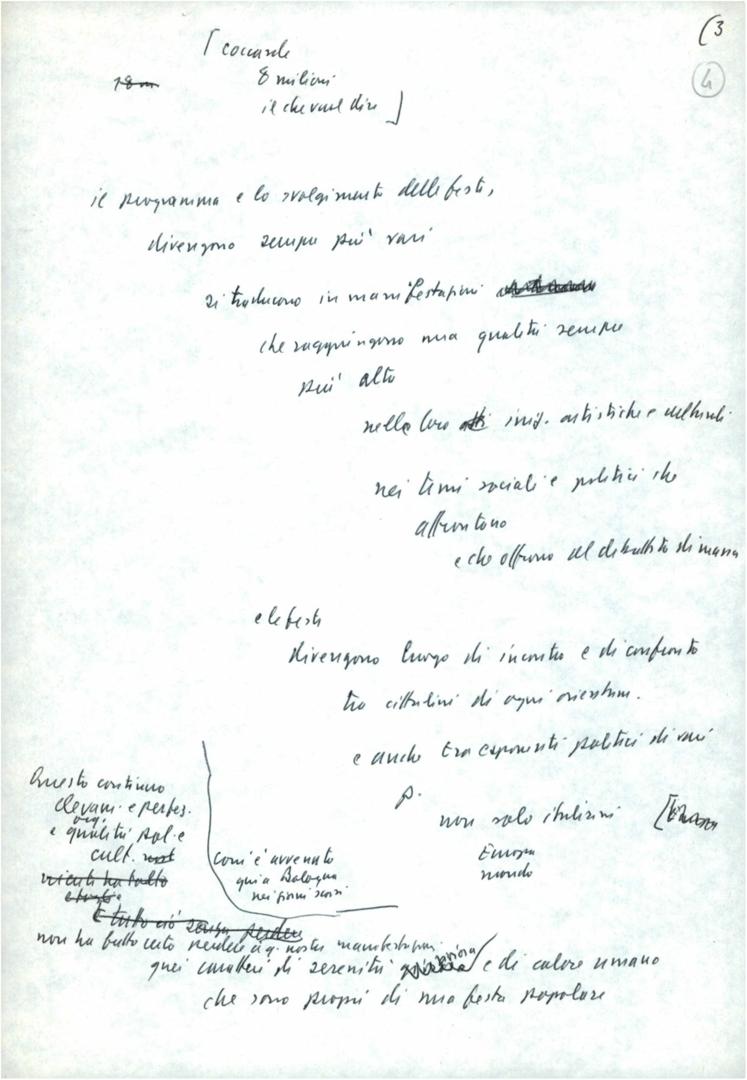 (3
4
[coccarde
8 milioni
il che vuol dire]
il programma e lo svolgimento delle feste,
divengono sempre più vari
si traducono in manifestazioni
che raggiungono una qualità sempre
più alta
nelle loro iniz. artistiche e culturali
nei temi sociali e politici che
affrontano
e che offrono al dibattito di massa
e le feste
divengono luogo di incontro e di confronto
tra cittadini di ogni orientam.
e anche tra esponenti politici di vari
p.
non solo italiani [Europa
Europa
mondo
com'è avvenuto
qui a Bologna
nei giorni scorsi
Questo continuo
elevam. e perfez.
org.
e qualità pol. e
cult.
E tutto ciò senza perdere
non ha fatto certo perdere a q. nostre manifestazioni
quei caratteri di serenità e di calore umano
che sono propri di una festa popolare